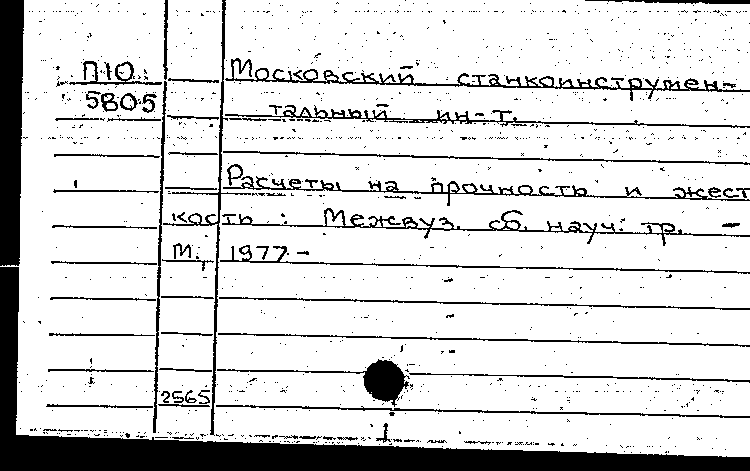 П10 Московский станкоинструмен-
5805 тальный ин-т.
Расчеты на прочность и жест
кость : Межвуз. сб. науч. тр. -
М., 1977-
2565